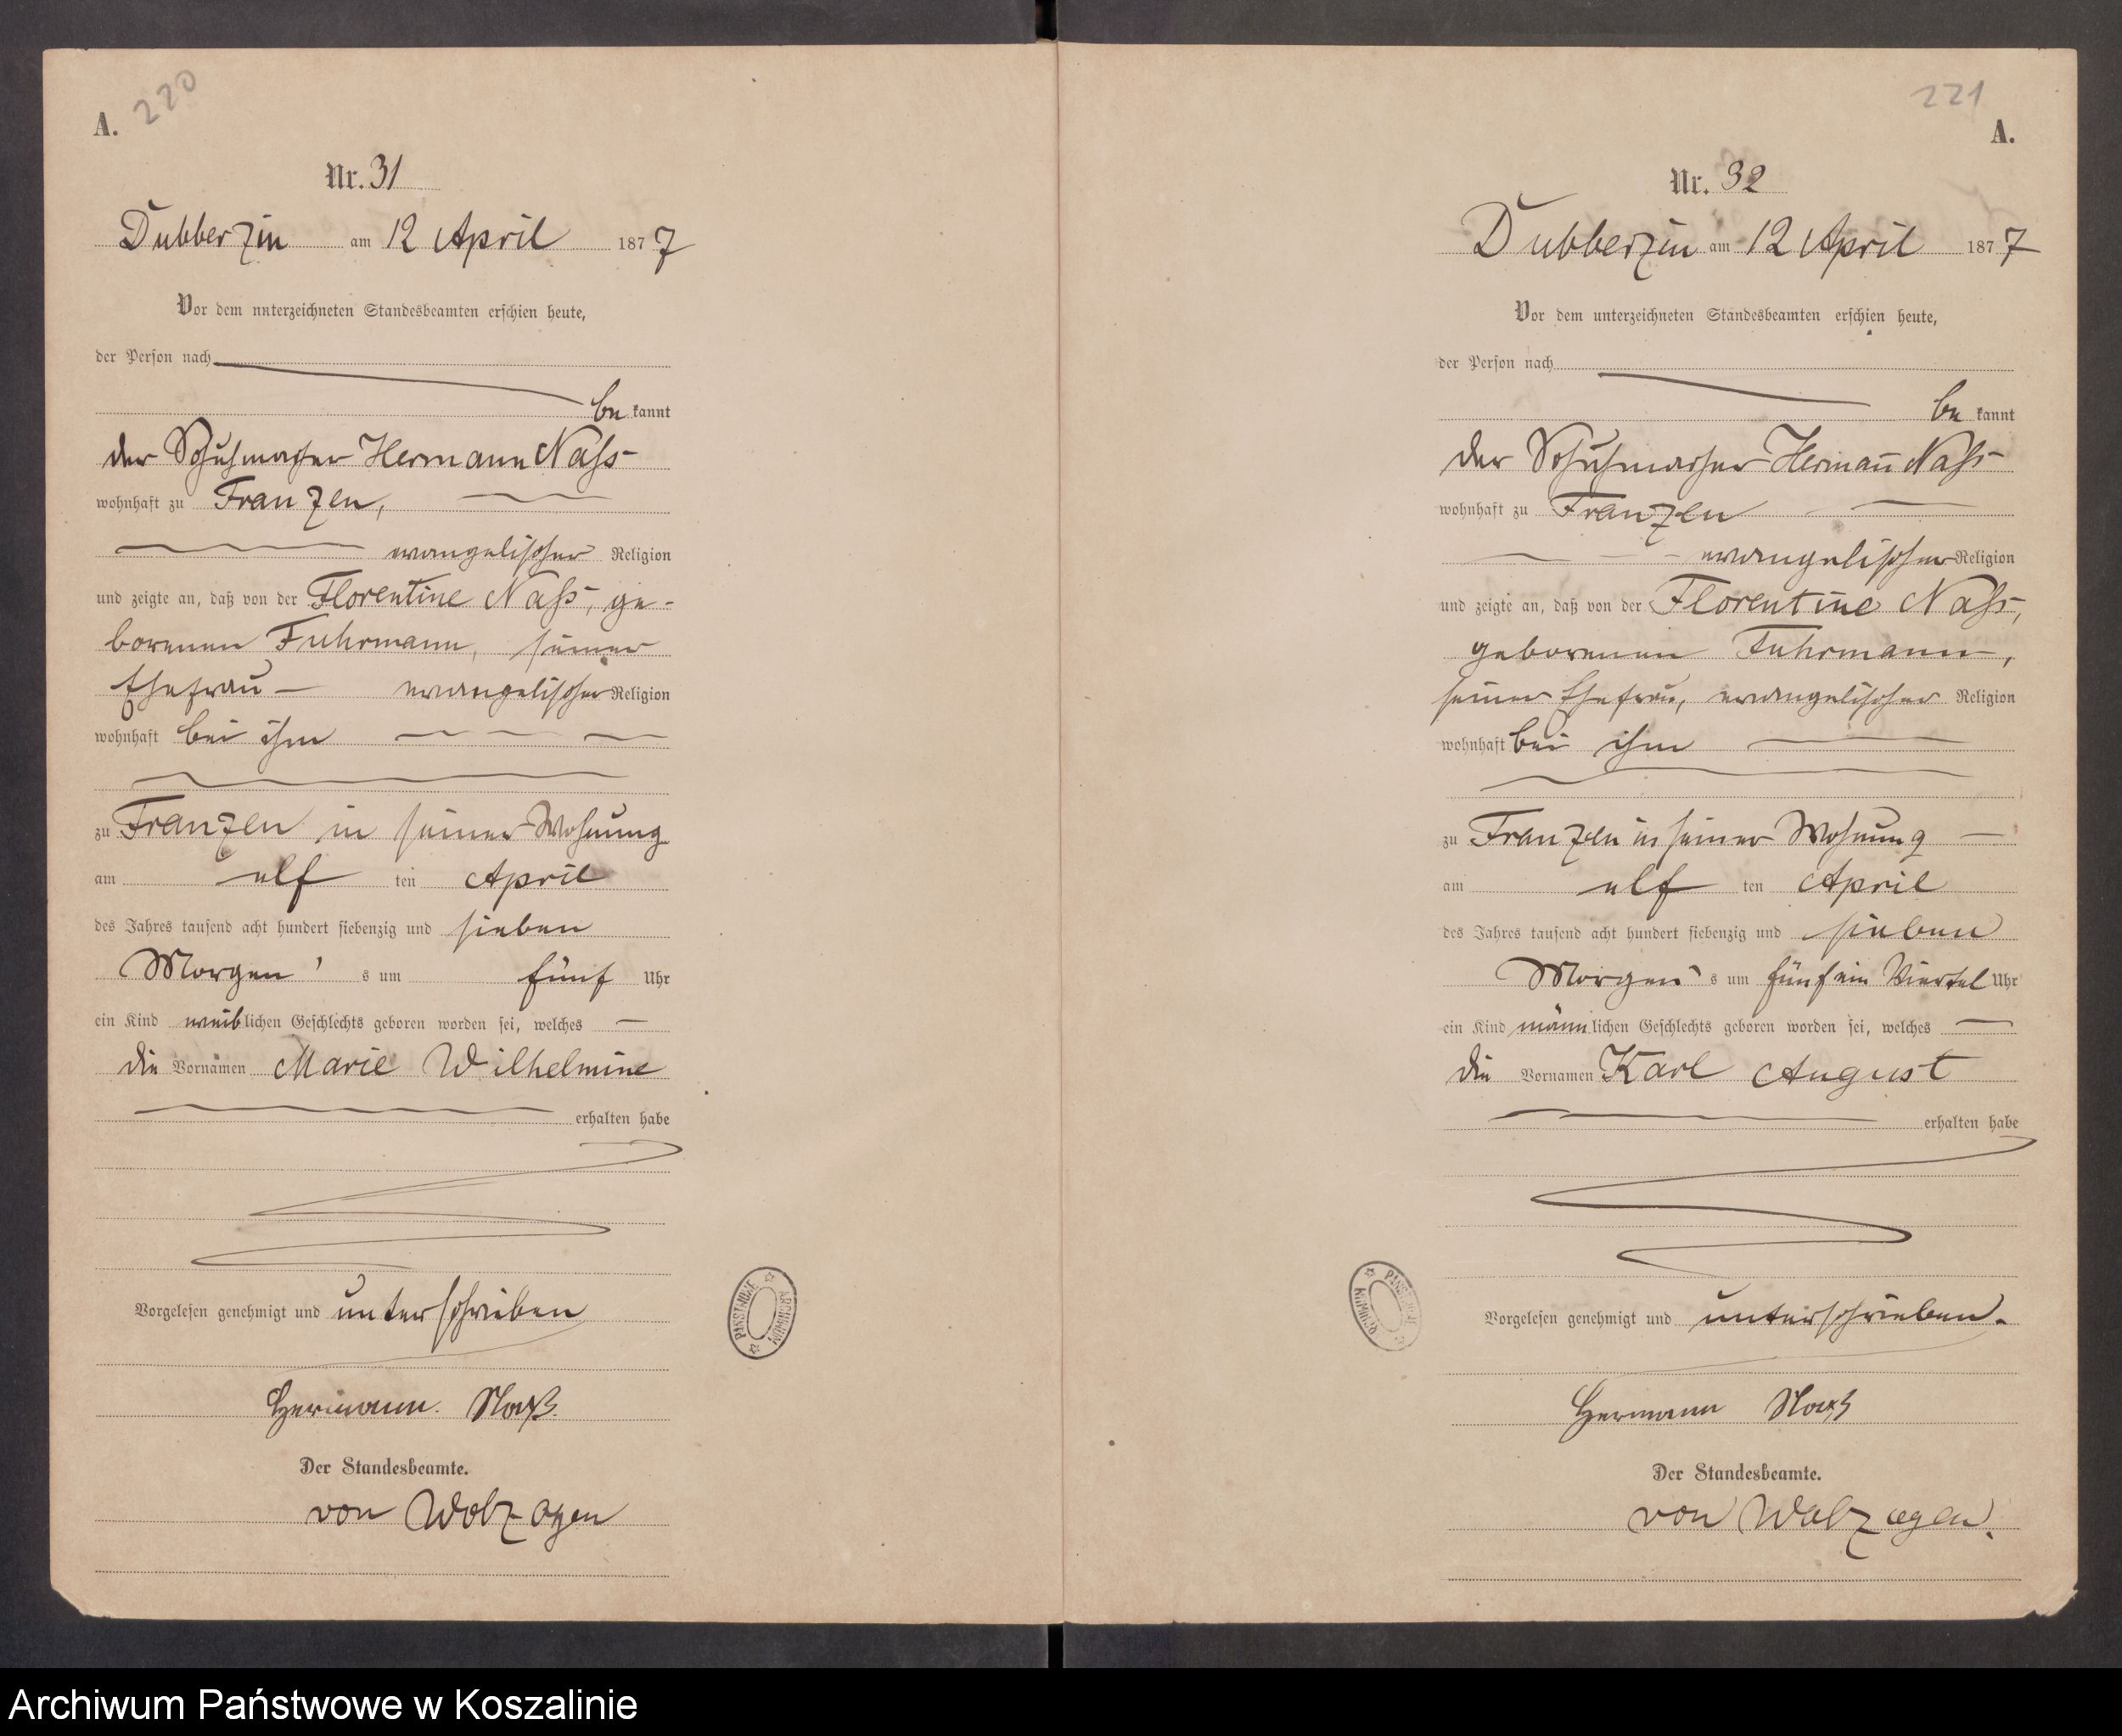 220
A.
Nr. 31
Dubberzin am 12 April 1877
Vor dem unterzeichneten Standesbeamten erschien heute,
der Person nach
be kannt
der Schuhmacher Hermann Nass
wohnhaft zu Franzen,
evangelischer Religion
und zeigte an, daß von der Florentine Nass, ge-
borenen Fuhrmann, seiner
Ehefrau evangelischer Religion
wohnhaft bei ihm
zu Franzen in seiner Wohnung
am elf ten April
des Jahres tausend acht hundert siebenzig und sieben
Morgen's um fünf Uhr
ein Kind weiblichen Geschlechts geboren worden sei, welches
die Vornamen Marie Wilhelmine
erhalten habe
Vorgelesen genehmigt und unterschrieben
Hermann. Naß.
Der Standesbeamte.
von Wolzogen
PAŃSTWOWE ARCHIWUM
221
A.
Nr. 32
Dubberzin am 12 April 1877
Vor dem unterzeichneten Standesbeamten erschien heute,
der Person nach
be kannt
der Schuhmacher Herman̄ Nass
wohnhaft zu Franzen
evangelischer Religion
und zeigte an, daß von der Florentine Nass,
geborenen Fuhrmann,
seiner Ehefrau, evangelischer Religion
wohnhaft bei ihm
zu Franzen in seiner Wohnung
am elf ten April
des Jahres tausend acht hundert siebenzig und sieben
Morgen's um fünf ein Viertel Uhr
ein Kind männlichen Geschlechts geboren worden sei, welches
die Vornamen Karl August
erhalten habe
Vorgelesen genehmigt und unterschrieben.
Hermann Naß
Der Standesbeamte.
von Wolzogen.
PAŃSTWOWE ARCHIWUM
Archiwum Państwowe w Koszalinie